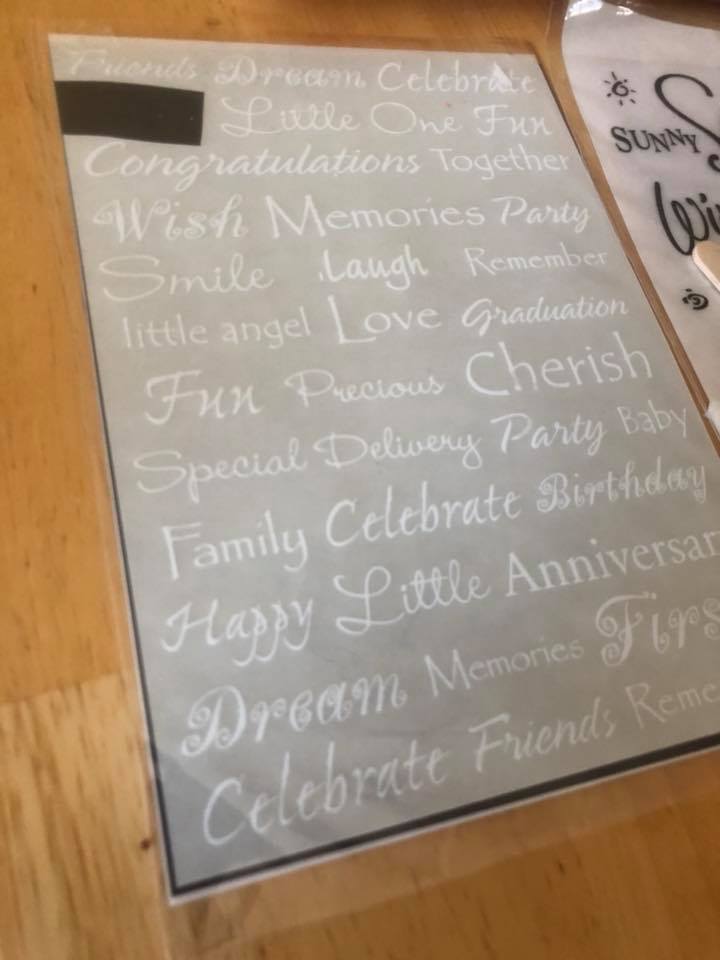 Friends Dream Celebrate
Little One Fun
Congratulations Together
Wish Memories Party
Smile Laugh Remember
little angel Love Graduation
Fun Precious Cherish
Special Delivery Party Baby
Family Celebrate Birthday
Happy Little Anniversar
Dream Memories Firs
Celebrate Friends Reme
SUNNY